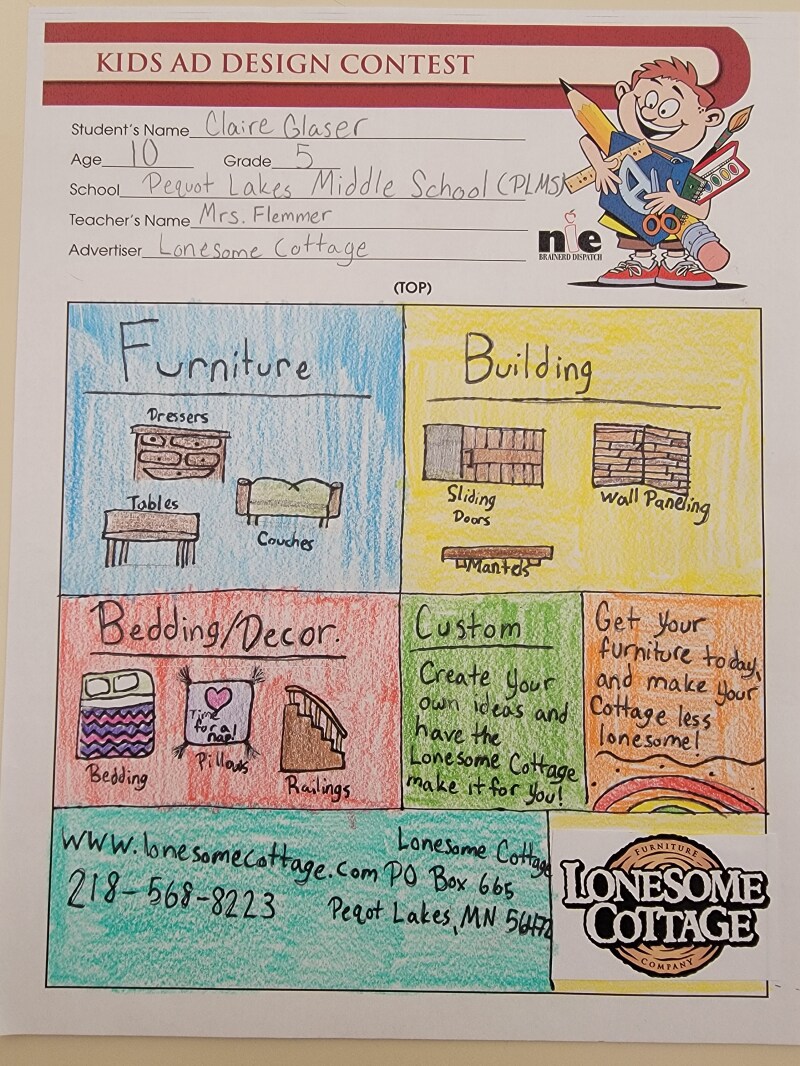 KIDS AD DESIGN CONTEST
Student's Name Claire Glaser
Age 10 Grade 5
School Pequot Lakes Middle School (PLMS)
Teacher's Name Mrs. Flemmer
Advertiser Lonesome Cottage
nie
BRAINERD DISPATCH
(TOP)
Furniture
Dressers
Tables
Couches
Building
Sliding
Doors
Wall Paneling
Mantels
Bedding/Decor.
Bedding
Time
for a
nap!
Pillows
Railings
Custom
Create your
own ideas and
have the
Lonesome Cottage
make it for you!
Get your
furniture today,
and make your
Cottage less
lonesome!
www.lonesomecottage.com
218-568-8223
Lonesome Cottage
PO Box 665
Peqot Lakes, MN 56472
FURNITURE
LONESOME
COTTAGE
COMPANY